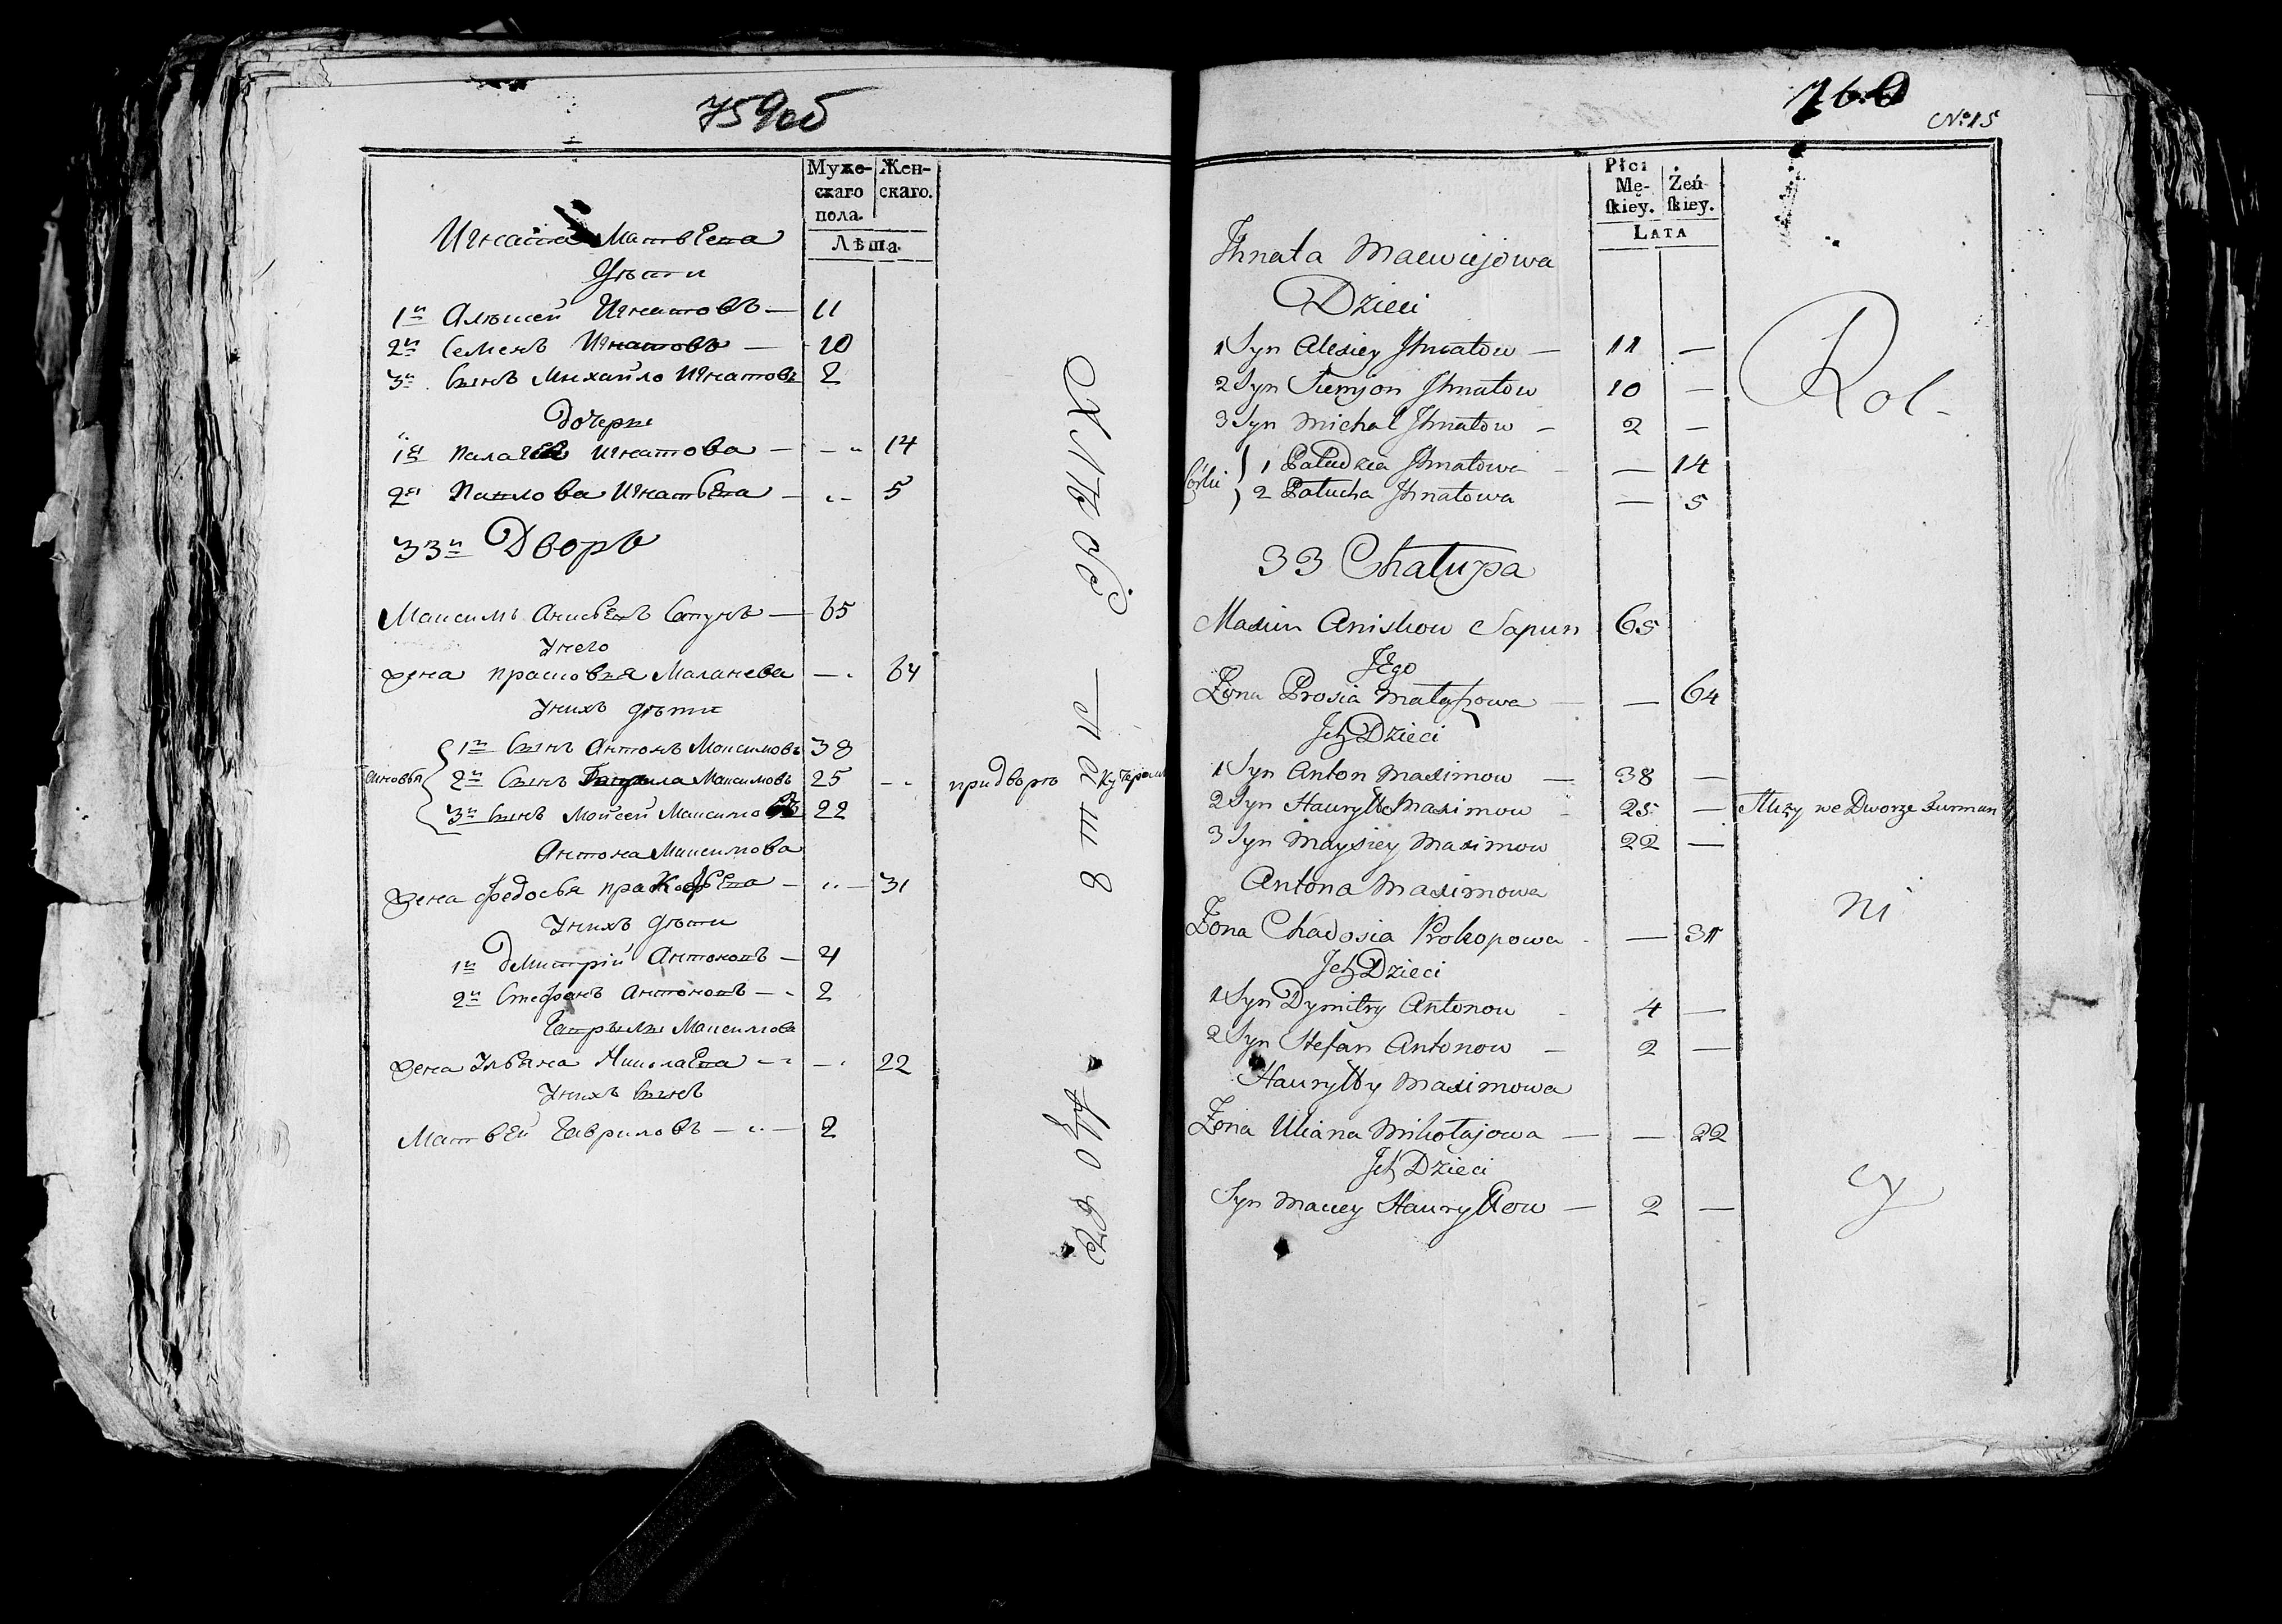 759об
Муже-
скаго
пола.
Жен-
скаго.
Лѣта.
Игната Матвѣева
Дѣти
1й Алексей Игнатовъ — 11
2й Семенъ Игнатовъ — 10
3й Сынъ Михайло Игнатовъ 2
Дочери
1я Палагея Игнатова — 14
2я Игнатьева — 5
33й Дворъ
Максимъ Сапунъ — 65
У него
жена Прасковья — 64
У нихъ дѣти
Сыновья
1й Сынъ Антонъ Максимовъ 38
2й Сынъ Гаврила Максимовъ 25 при дворѣ Кучеромъ
3й Сынъ Мойсей Максимовъ 22
Антона Максимова
жена Федосья — 31
У нихъ дѣти
1й Дмитрій Антоновъ — 4
2й Стефанъ Антоновъ — 2
Гаврилы Максимова
жена Ульяна Николаева — 22
У нихъ сынъ
Матвѣй Гавриловъ — 2
Хлѣбо-паш
760
No 15
Płci
Mę-
skiey.
Żeń-
skiey.
LATA
Ihnata Maciejowa
Dzieci
1 Syn Alexiey Ihnatow — 11 —
2 Syn Siemjon Ihnatow 10 —
3 Syn Michał Ihnatow — 2 —
Córki
1 Ihnatowa — 14
2 Pałucha Ihnatowa — 5
33 Chałupa
Maxim Aniskow Sapun 65
JEgo
Żona Prosia — 64
Ich Dzieci
1 Syn Anton Maximow — 38 —
2 Syn Hauryłło Maximow 25 — Służy we Dworze Furman
3 Syn Maysiey Maximow 22 —
Antona Maximowa
Żona Chadosia Prokopowa — 31
Ich Dzieci
1 Syn Dymitry Antonow 4 —
2 Syn Stefan Antonow — 2 —
Hauryłły Maximowa
Żona Uliana Mikołajowa — — 22
Ich Dzieci
Syn Maciey Hauryłłow — 2 —
Rol-
ni
cy